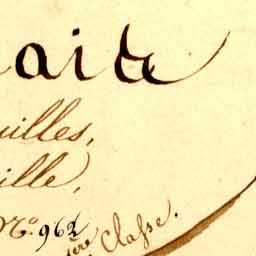 aite
uilles,
ille,
N.º 962
1ère Classe.